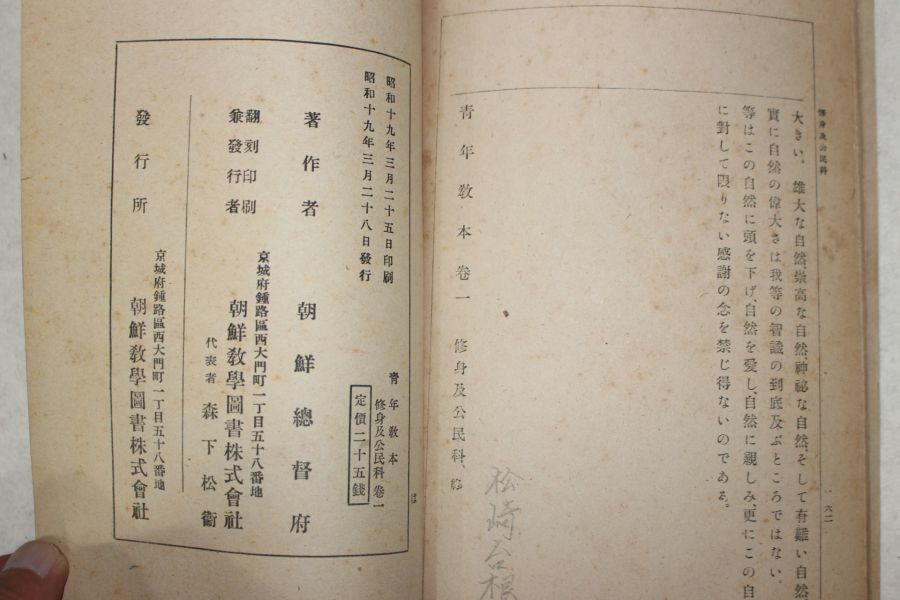 修身及公民科
一六二
大きい。雄大な自然、崇高な自然、神祕な自然、そして有難い自然、
實に自然の偉大さは我等の智識の到底及ぶところではない。
等はこの自然に頭を下げ、自然を愛し、自然に親しみ、更にこの自
に對して限りない感謝の念を禁じ得ないのである。
青年教本卷一 修身及公民科、終
松崎
根
青年教本
修身及公民科卷一
定價二十五錢
昭和十九年三月二十五日印刷
昭和十九年三月二十八日發行
著作者 朝鮮總督府
翻刻印刷
兼發行者
京城府鍾路區西大門町一丁目五十八番地
朝鮮教學圖書株式會社
代表者 森下松衞
發行所
京城府鍾路區西大門町一丁目五十八番地
朝鮮教學圖書株式會社